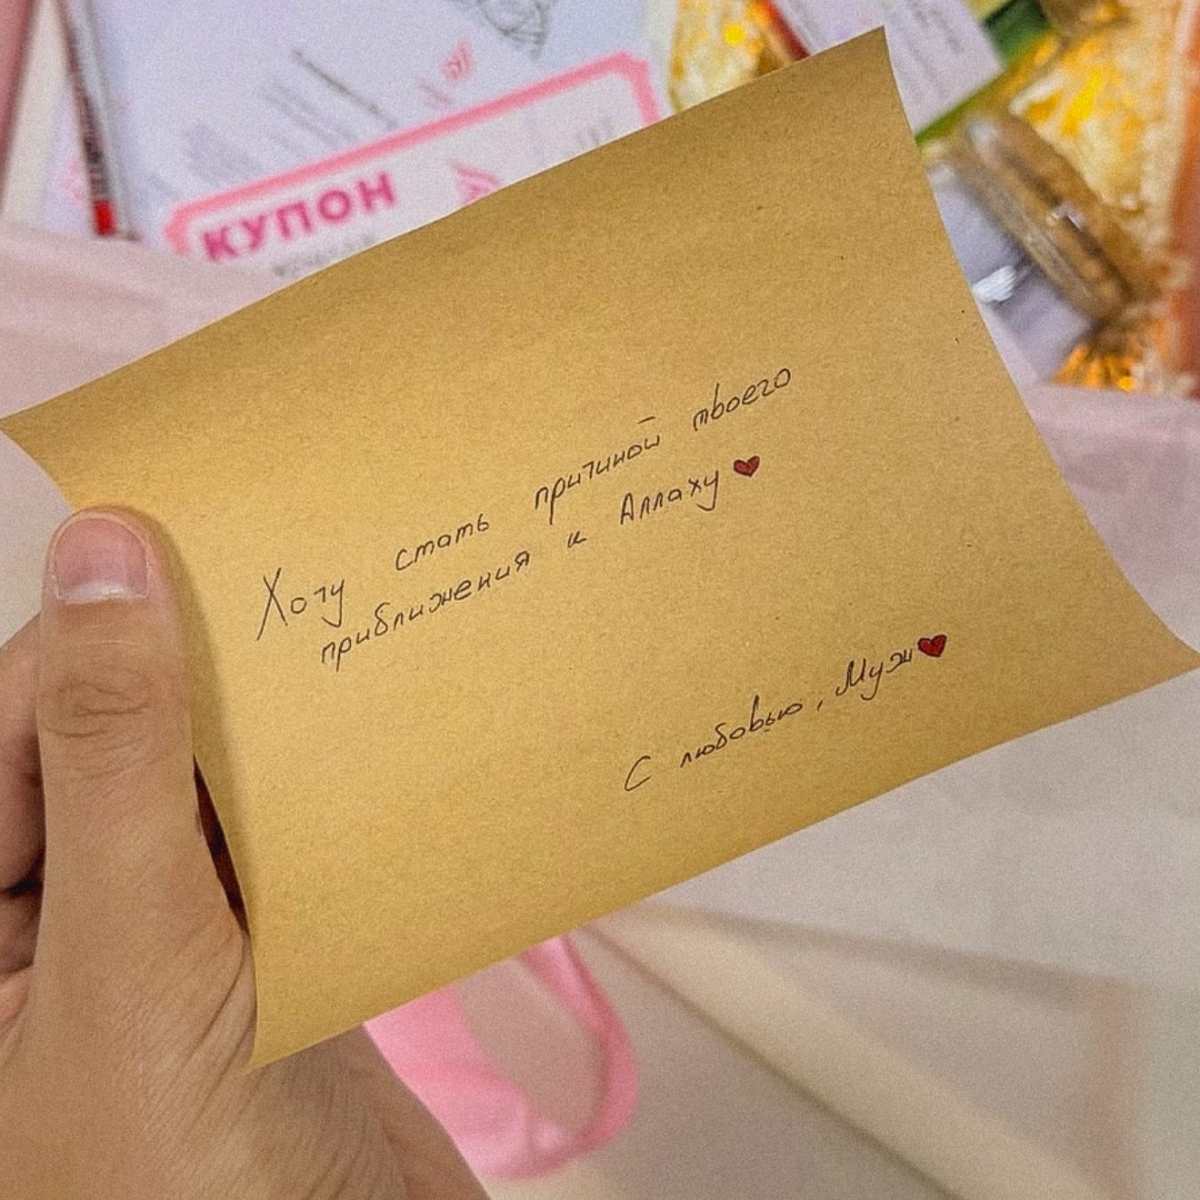 КУПОН
Хочу стать причиной твоего
приближения к Аллаху
С любовью, Муж